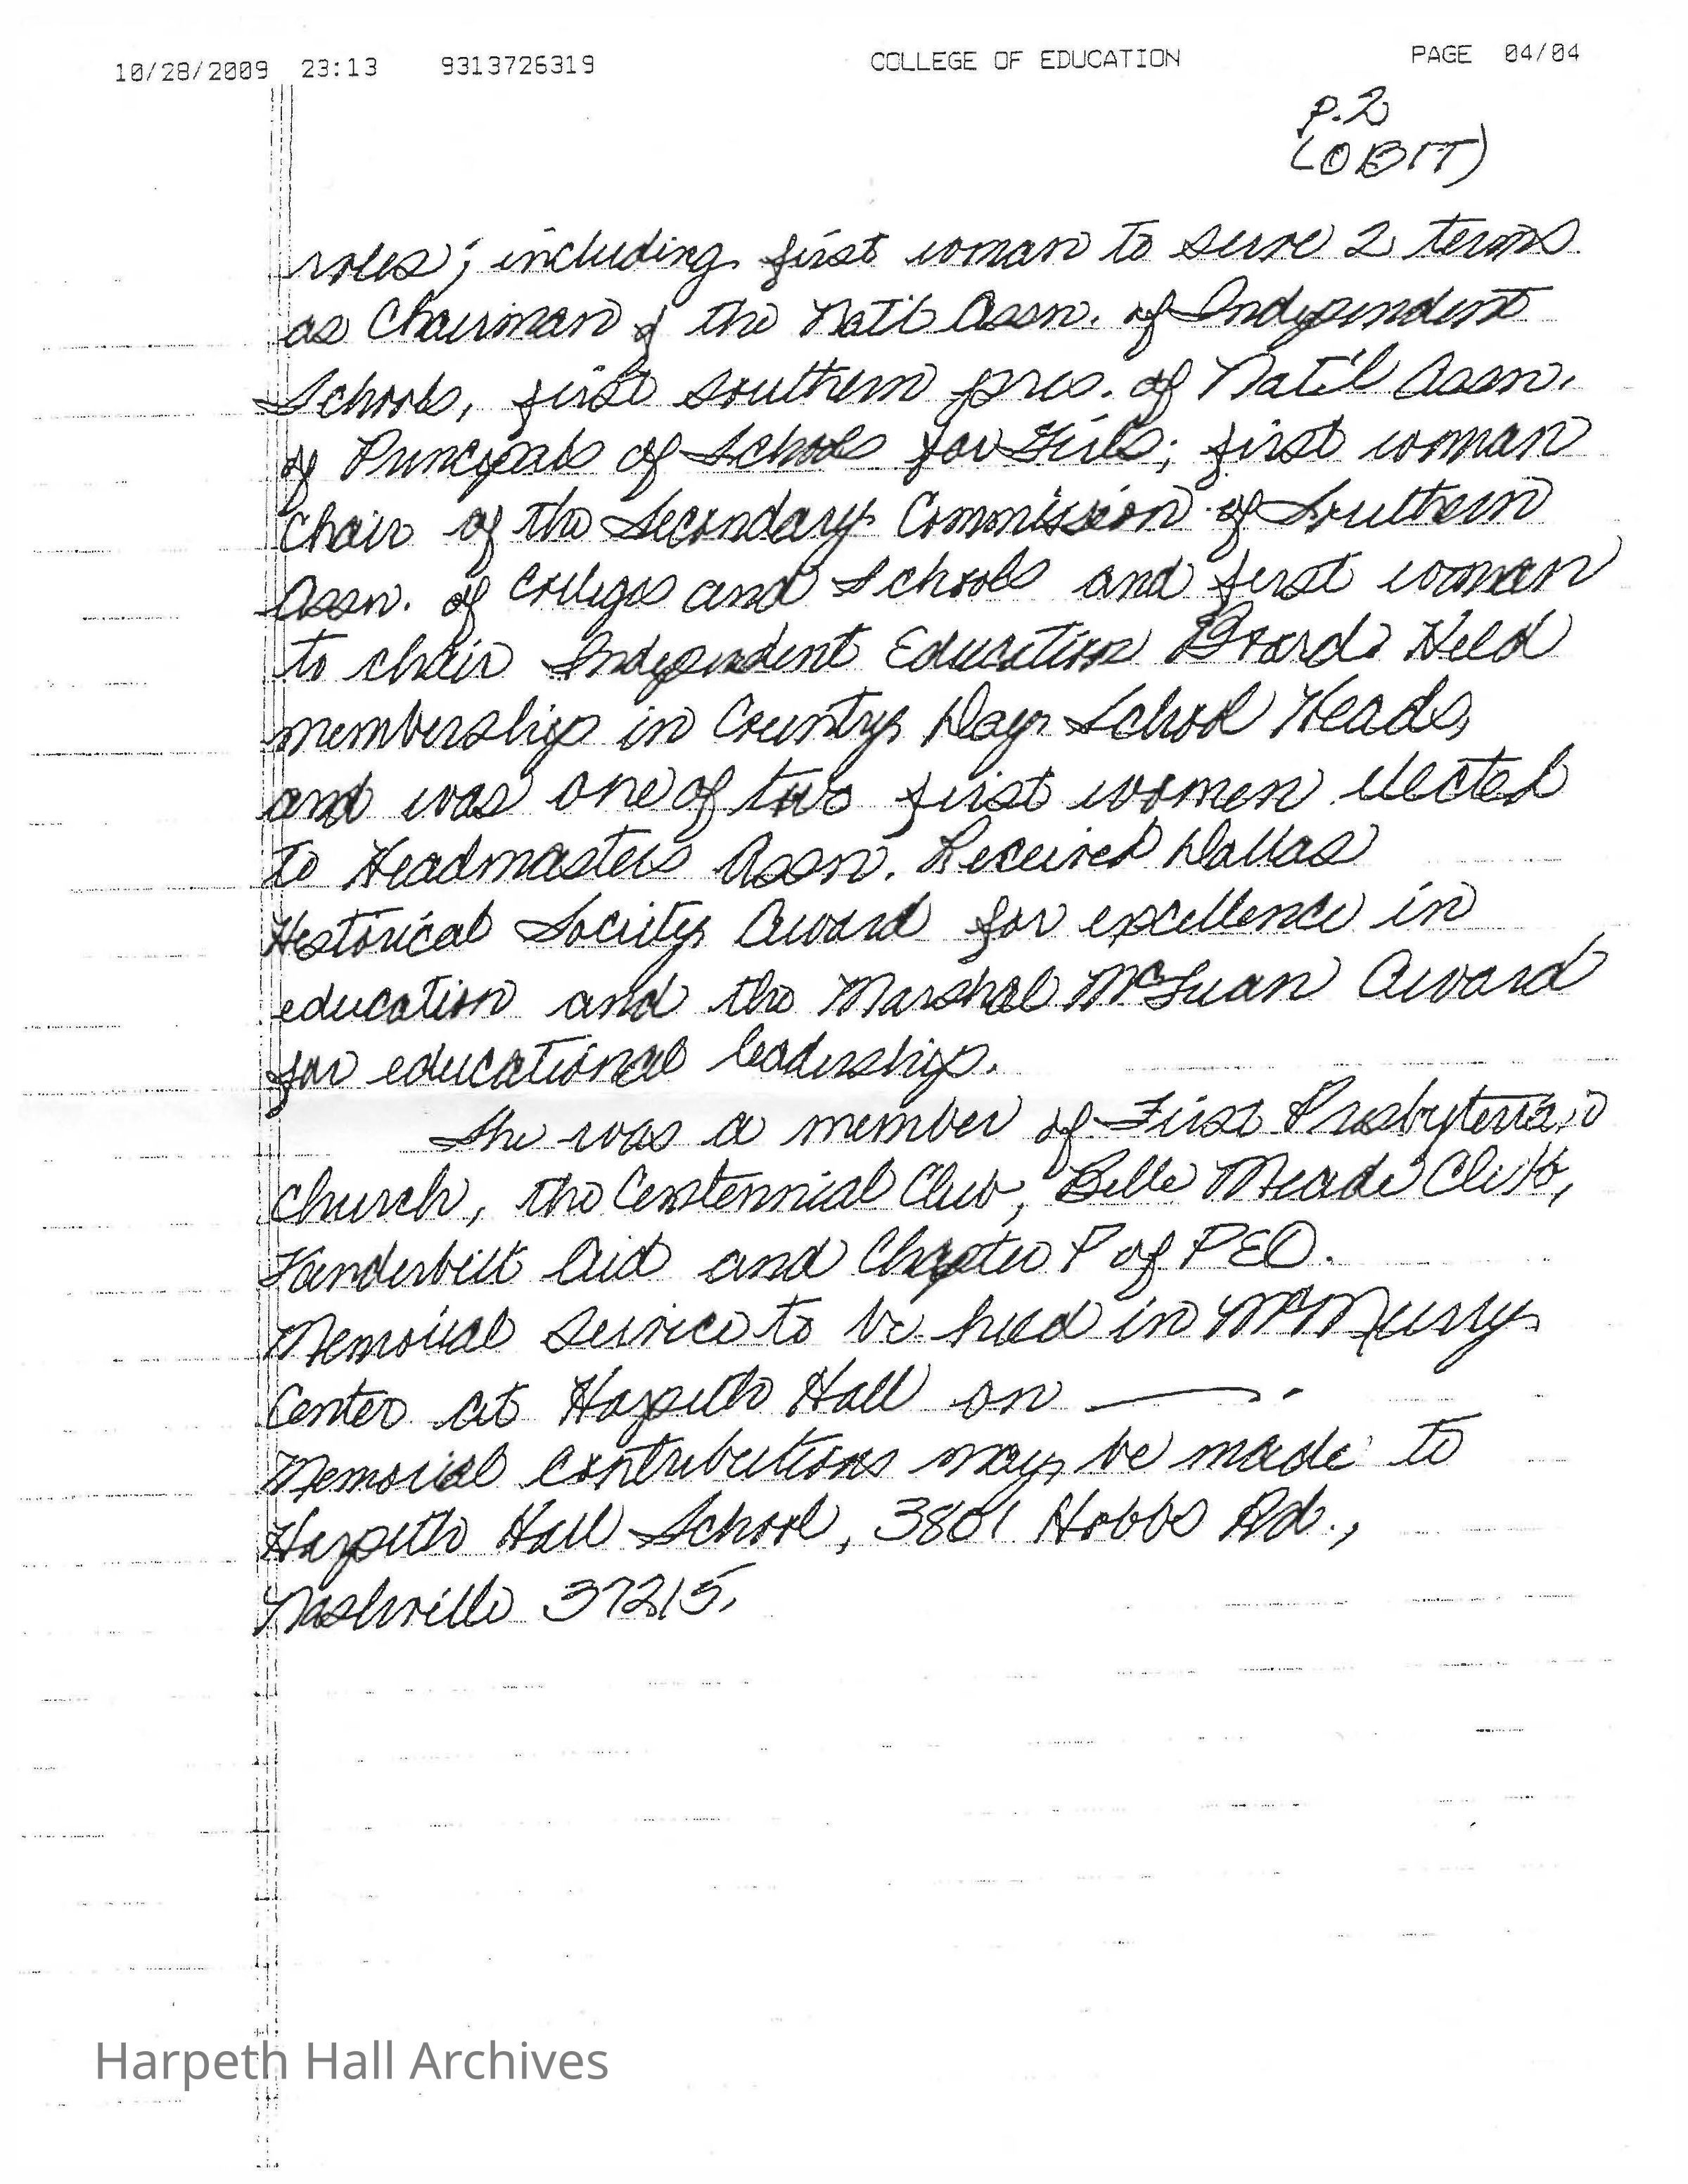 10/28/2009 23:13 9313726319 COLLEGE OF EDUCATION PAGE 04/04
p.2
(OBIT)
roles; including first woman to serve 2 terms
as Chairman of the Nat'l Assn. of Independent
Schools, first southern pres. of Nat'l Assn.
of Principals of Schools for Girls; first woman
chair of the Secondary Commission of Southern
Assn. of Colleges and Schools and first woman
to chair Independent Education Board. Held
membership in Country Day School Heads,
and was one of two first women elected
to Headmasters Assn. Received Dallas
Historical Society Award for excellence in
education and the Marshal McLuan Award
for educational leadership.
She was a member of First Presbyterian
Church, the Centennial Club, Belle Meade Club,
Vanderbilt Aid and Chapter P of PEO.
Memorial service to be held in McMurry
Center at Harpeth Hall on ——.
Memorial contributions may be made to
Harpeth Hall School, 3801 Hobbs Rd.,
Nashville 37215.
Harpeth Hall Archives